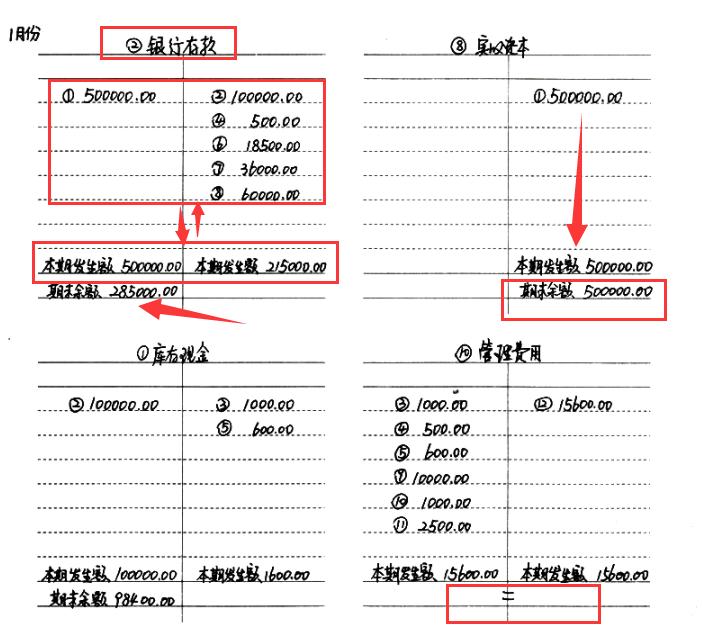 1月份
② 银行存款
① 500000.00 ② 100000.00
④ 500.00
⑥ 18500.00
⑦ 36000.00
⑧ 60000.00
本期发生额 500000.00 本期发生额 215000.00
期末余额 285000.00
⑧ 实收资本
① 500000.00
本期发生额 500000.00
期末余额 500000.00
① 库存现金
② 100000.00 ③ 1000.00
⑤ 600.00
本期发生额 100000.00 本期发生额 1600.00
期末余额 98400.00
⑩ 管理费用
③ 1000.00 ⑫ 15600.00
④ 500.00
⑤ 600.00
⑨ 10000.00
⑩ 1000.00
⑪ 2500.00
本期发生额 15600.00 本期发生额 15600.00
=